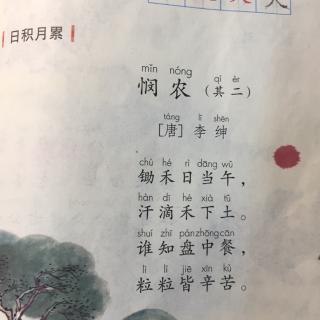 日积月累
mǐn nóng qí èr
悯农（其二）
táng lǐ shēn
[唐] 李绅
chú hé rì dāng wǔ
锄禾日当午，
hàn dī hé xià tǔ
汗滴禾下土。
shuí zhī pán zhōng cān
谁知盘中餐，
lì lì jiē xīn kǔ
粒粒皆辛苦。